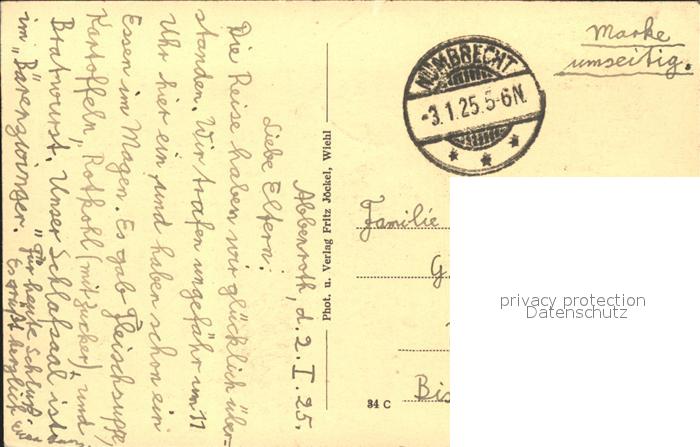 Abbenroth, d. 2. I. 25.
Liebe Eltern!
Die Reise haben wir glücklich über-
standen. Wir trafen ungefähr um 11
Uhr hier ein und haben schon ein
Essen im Magen. Es gab Fleischsuppe,
Kartoffeln, Rotkohl (mit Zucker) und
Bratwurst. Unser Schlafsaal ist
im "Bärenzwinger."
Für heute Schluß.
Es grüßt herzlich
Phot. u. Verlag Fritz Jöckel, Wiehl
34 C
NÜMBRECHT
-3.1.25.5-6N.
Marke
umseitig.
Familie
G
Bis
privacy protection
Datenschutz